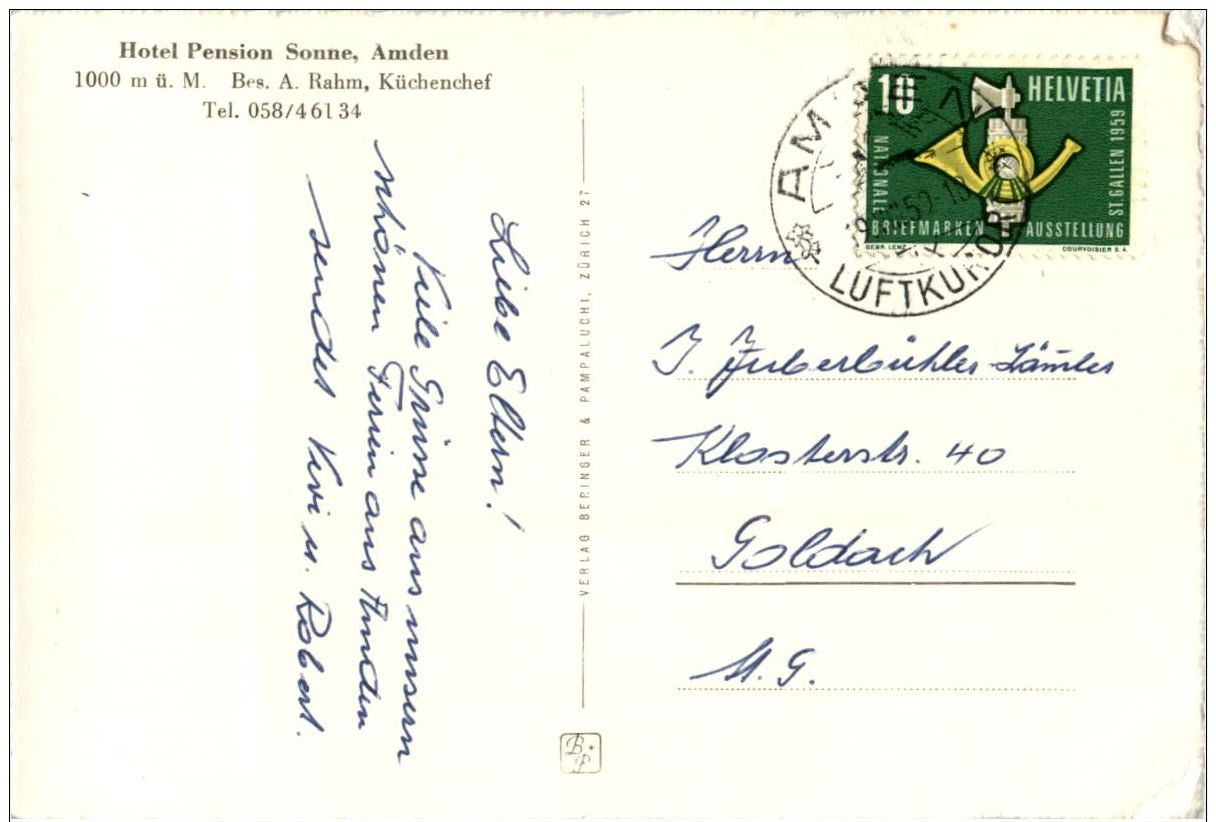 Hotel Pension Sonne, Amden
1000 m ü. M. Bes. A. Rahm, Küchenchef
Tel. 058/461 34
Liebe Eltern!
Viele Grüsse aus unsern
schönen Ferien aus Amden
sendet Vivi u. Robert.
VERLAG BERINGER & PAMPALUCHI, ZÜRICH 27
B. P
10
HELVETIA
NATIONALE
BRIEFMARKEN AUSSTELLUNG
ST. GALLEN 1959
GEBR. LENZ
COURVOISIER S.A.
AM
LUFTKUROR
Herrn
J. Zuberbühler-Lämler
Klosterstr. 40
Goldach
St. G.